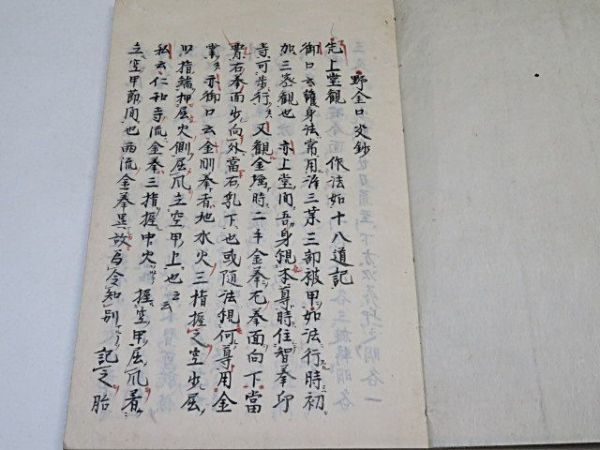 野金口決鈔
先上堂觀 作法如十八道記
御口云護身法常用淨三業三部被甲如法行時初
加三密觀也 亦上堂間吾身觀本尊時住智拳印
寺可步行 又觀金薩時二手金拳左拳面向下當
右拳面少向外當右乳下也或隨法觀何尊用金
亦御口云金剛拳者地水火三指握之空少屈
以指端押屈火側屈爪立空甲上也云云
私云仁和寺流金拳三指握中火 握空甲屈爪着
立空甲節間也兩流金拳異故為令知別記之 胎